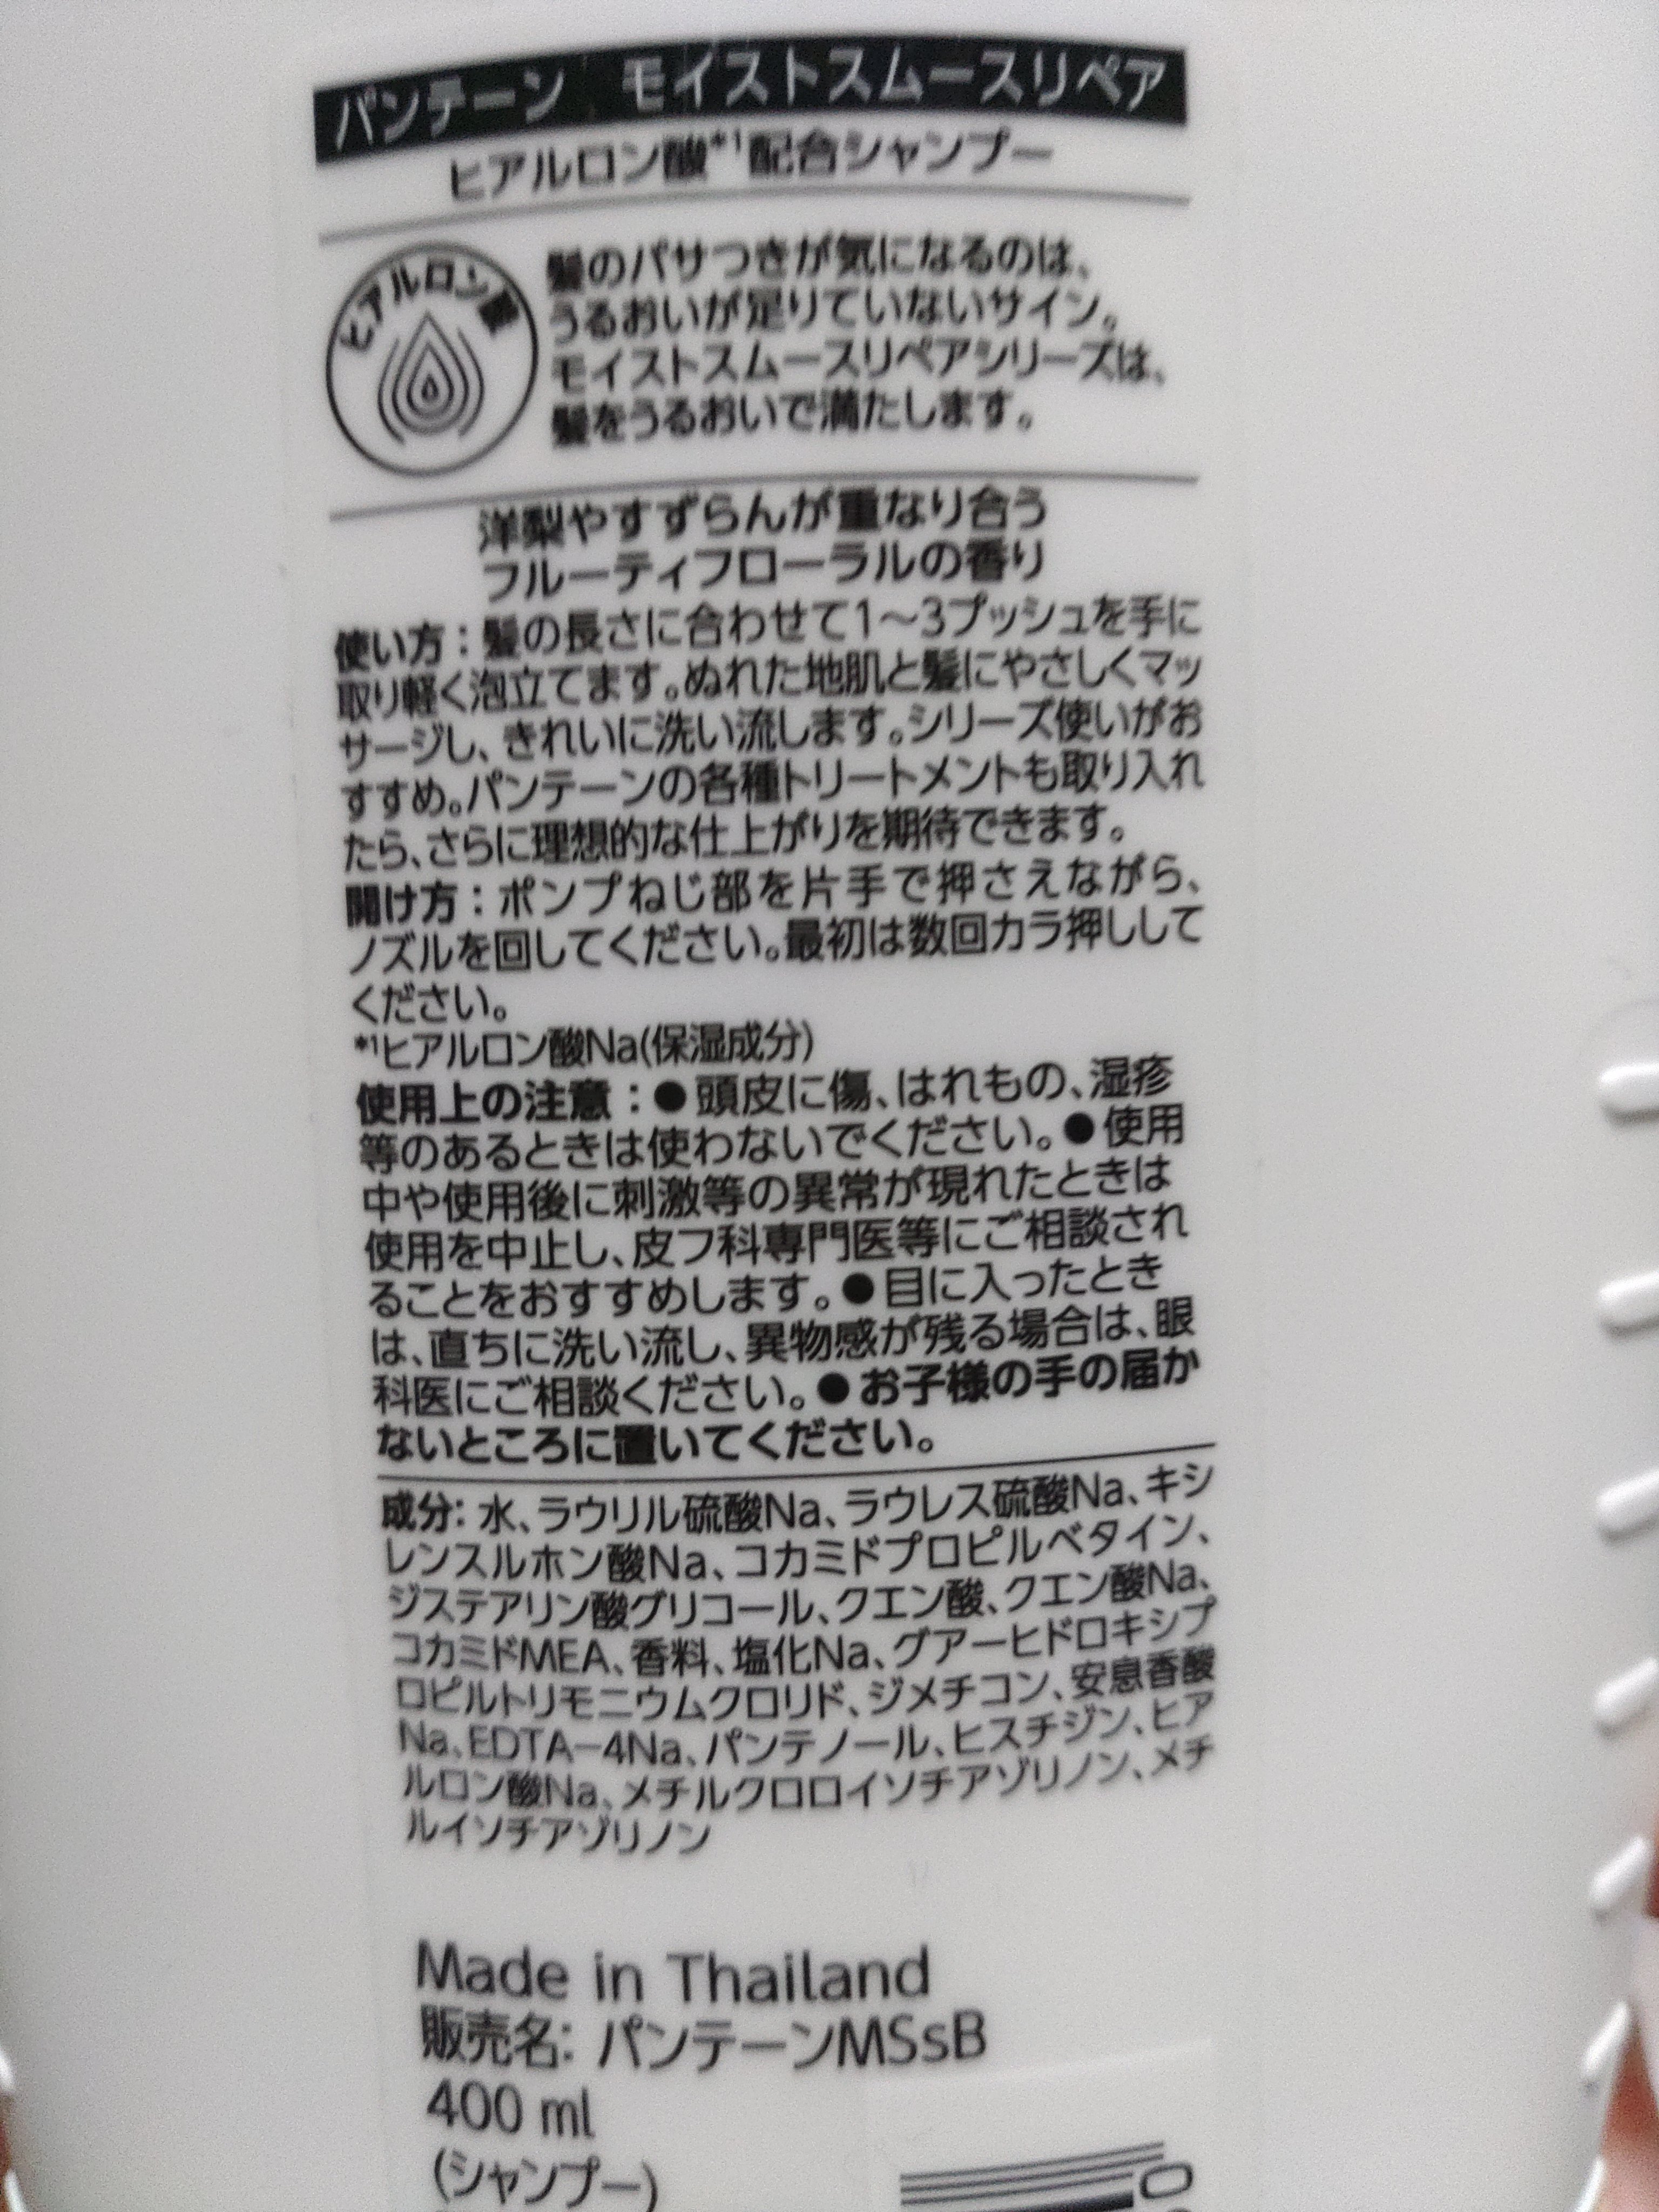 パンテーン モイストスムースリペア
ヒアルロン酸*1配合シャンプー
ヒアルロン酸
髪のパサつきが気になるのは、
うるおいが足りていないサイン。
モイストスムースリペアシリーズは、
髪をうるおいで満たします。
洋梨やすずらんが重なり合う
フルーティフローラルの香り
使い方：髪の長さに合わせて1～3プッシュを手に
取り軽く泡立てます。ぬれた地肌と髪にやさしくマッ
サージし、きれいに洗い流します。シリーズ使いがお
すすめ。パンテーンの各種トリートメントも取り入れ
たら、さらに理想的な仕上がりを期待できます。
開け方：ポンプねじ部を片手で押さえながら、
ノズルを回してください。最初は数回カラ押しして
ください。
*1ヒアルロン酸Na(保湿成分)
使用上の注意：●頭皮に傷、はれもの、湿疹
等のあるときは使わないでください。●使用
中や使用後に刺激等の異常が現れたときは
使用を中止し、皮フ科専門医等にご相談され
ることをおすすめします。●目に入ったとき
は、直ちに洗い流し、異物感が残る場合は、眼
科医にご相談ください。●お子様の手の届か
ないところに置いてください。
成分：水、ラウリル硫酸Na、ラウレス硫酸Na、キシ
レンスルホン酸Na、コカミドプロピルベタイン、
ジステアリン酸グリコール、クエン酸、クエン酸Na、
コカミドMEA、香料、塩化Na、グアーヒドロキシプ
ロピルトリモニウムクロリド、ジメチコン、安息香酸
Na、EDTA－4Na、パンテノール、ヒスチジン、ヒア
ルロン酸Na、メチルクロロイソチアゾリノン、メチ
ルイソチアゾリノン
Made in Thailand
販売名：パンテーンMSsB
400 ml
(シャンプー)